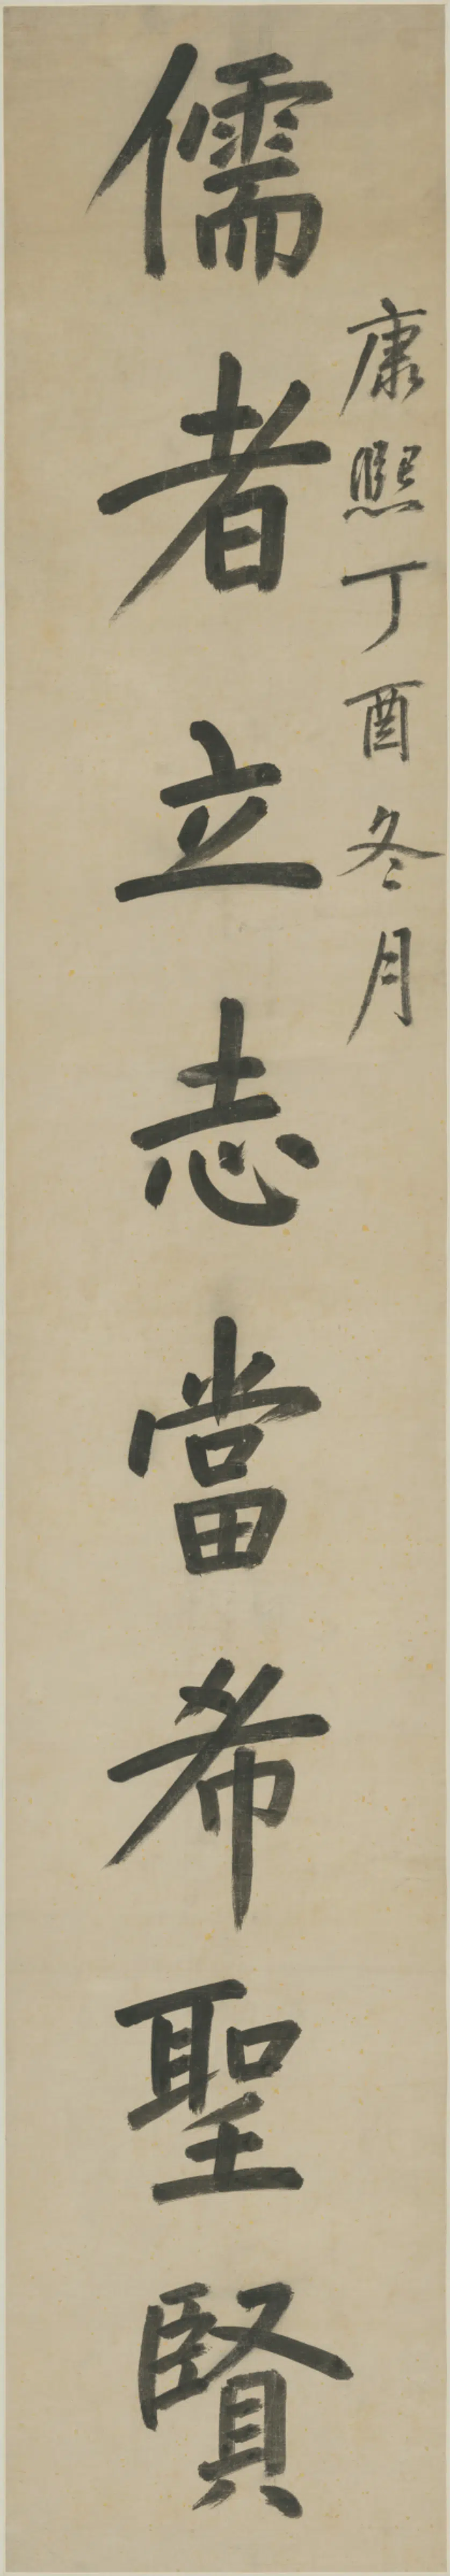 康熙丁酉冬月
儒者立志當希聖賢